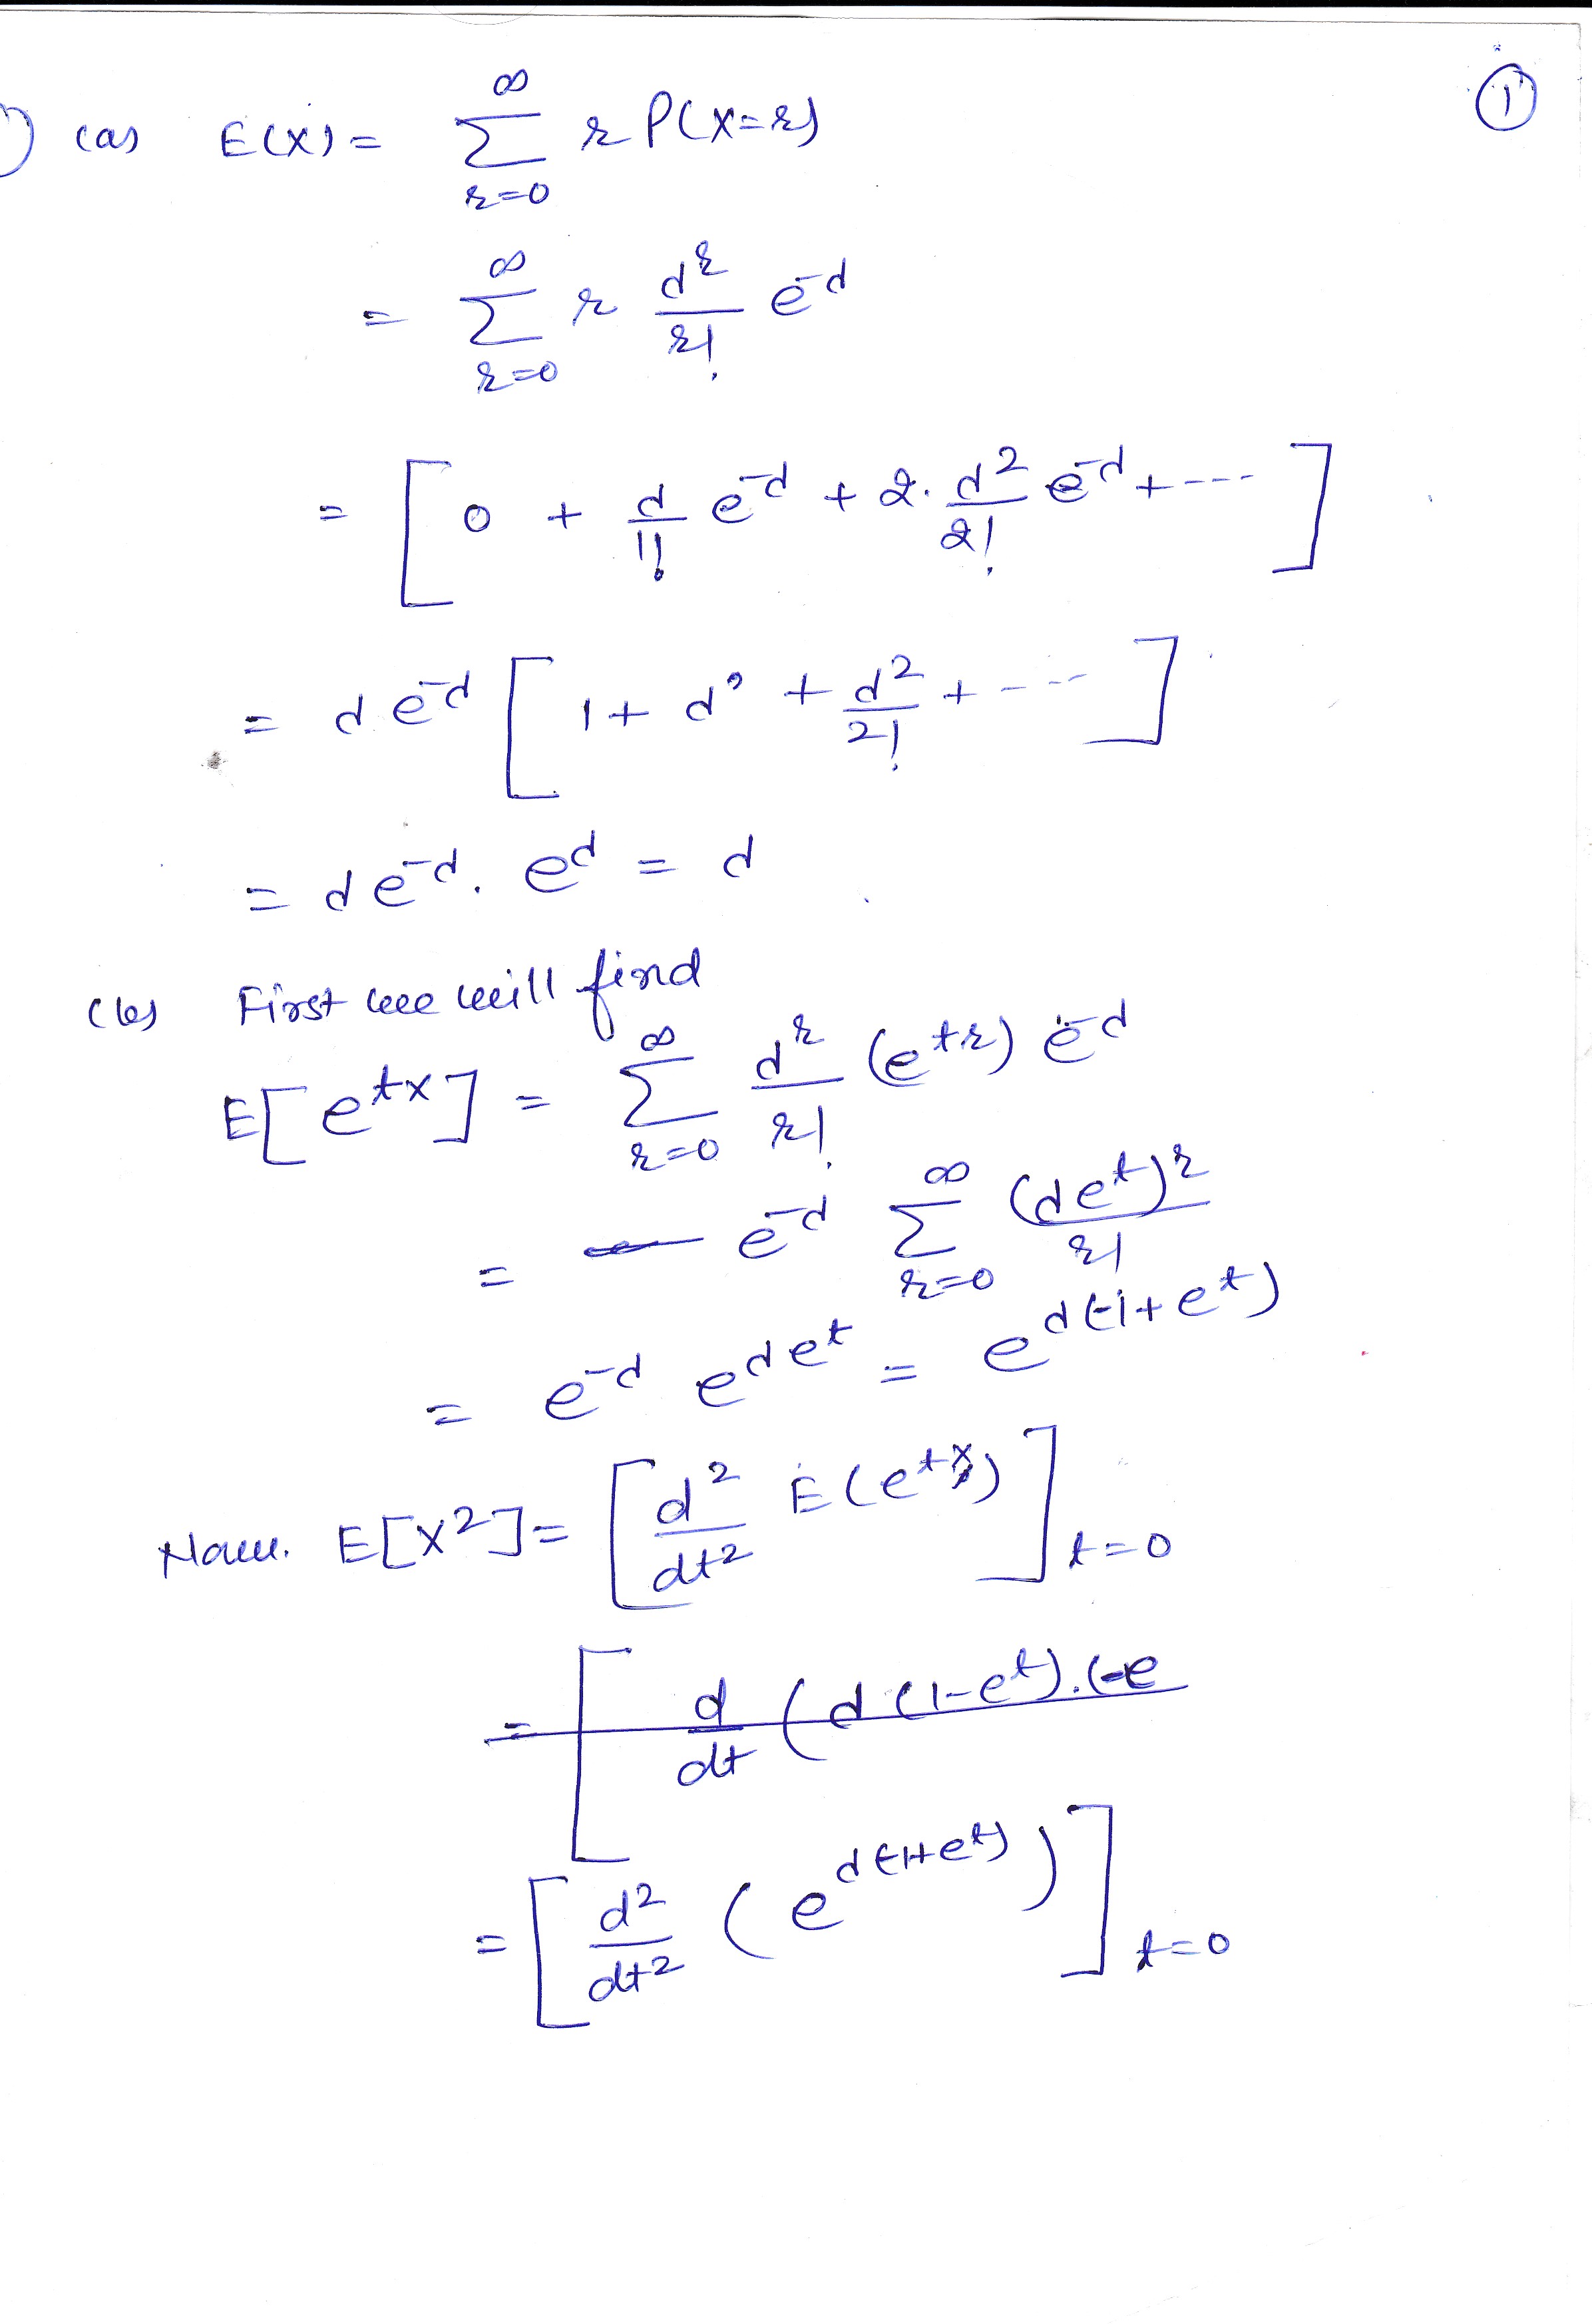 ①
1) (a) E(X) = ∞ Σ r=0 r P(X=r)
= ∞ Σ r=0 r d^r/r! e^-d
= [ 0 + d/1! e^-d + 2. d^2/2! e^-d + ---- ]
= d e^-d [ 1 + d + d^2/2! + ---- ]
= d e^-d . e^d = d
(b) First we will find
E[e^tx] = ∞ Σ r=0 d^r/r! (e^tr) e^-d
= e^-d ∞ Σ r=0 (de^t)^r/r!
= e^-d e^de^t = e^d(-1+e^t)
Now. E[X^2] = [ d^2/dt^2 E(e^tx) ] t=0
= [ d/dt ( d (1-e^t).(-e
= [ d^2/dt^2 ( e^d(-1+e^t) ) ] t=0